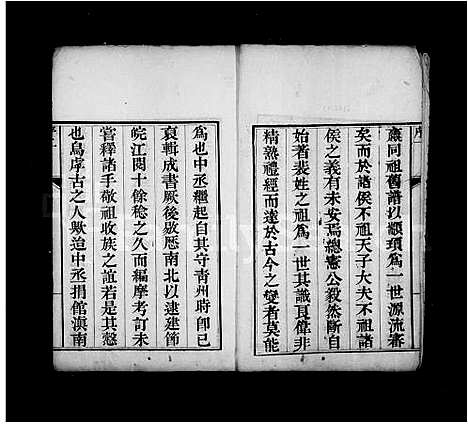 序
肅同祖舊譜以顓頊爲一世源流審
矣而於諸侯不祖天子大夫不祖諸
侯之義有未安焉總憲公毅然斷自
始著裴姓之祖爲一世其識良偉非
精熟禮經而達於古今之變者莫能
爲也中丞繼起自其守青州時卽已
裒輯成書厥後敭歷南北以逮建節
皖江閱十餘稔之久而編摩考訂未
嘗釋諸手敬祖收族之誼若是其懃
也烏虖古之人歟迨中丞捐館滇南